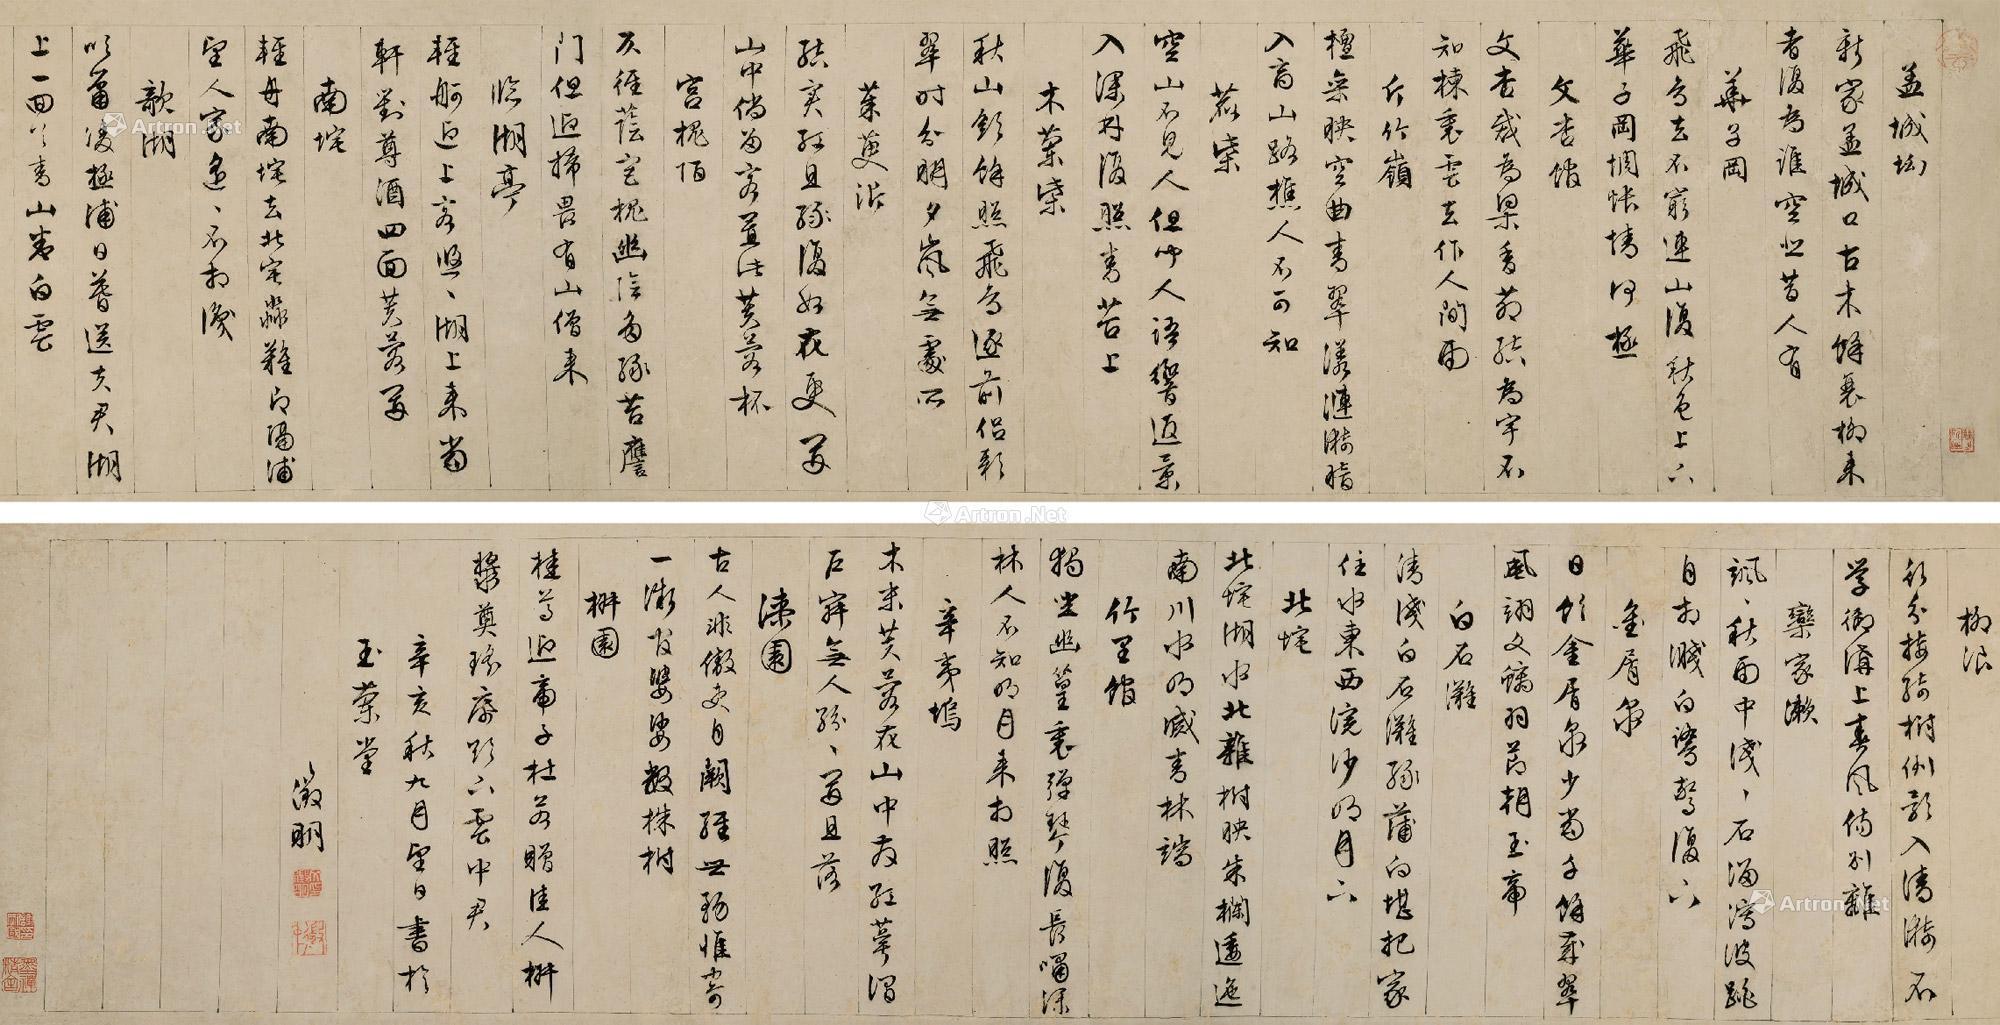 孟城坳
新家孟城口古木餘衰柳来
者復為誰空悲昔人有
華子岡
飛鳥去不窮連山復秋色上下
華子岡惆悵情何極
文杏館
文杏裁為梁香茅結為宇不
知棟裏雲去作人間雨
斤竹嶺
檀欒映空曲青翠漾漣漪暗
入商山路樵人不可知
鹿柴
空山不見人但聞人語響返景
入深林復照青苔上
木蘭柴
秋山斂餘照飛鳥逐前侶彩
翠時分明夕嵐無處所
茱萸沜
結實紅且綠復如花更開
山中倘留客置此芙蓉杯
宮槐陌
仄徑蔭宮槐幽陰多綠苔應
门但迎掃畏有山僧来
臨湖亭
輕舸迎上客悠、湖上来當
軒對尊酒四面芙蓉開
南垞
輕舟南垞去北垞淼難即隔浦
望人家遙、不相識
欹湖
吹簫凌極浦日暮送夫君湖
上一回首青山卷白雲
柳浪
分接綺樹倒影入清漪不
學御溝上春風傷別離
欒家瀨
颯、秋雨中淺、石溜瀉波跳
自相濺白鷺驚復下
金屑泉
日飲金屑泉少當千餘歲翠
鳳翊文螭羽節朝玉帝
白石灘
清淺白石灘綠蒲向堪把家
住水東西浣沙明月下
北垞
北垞湖水北雜樹映朱欄逶迤
南川水明滅青林端
竹里館
獨坐幽篁裏彈琴復長嘯深
林人不知明月来相照
辛夷塢
木末芙蓉花山中發紅萼澗
戶寂無人紛、開且落
漆園
古人非傲吏自闕經世務惟寄
一微官婆娑數株樹
椒園
桂尊迎帝子杜若贈佳人椒
漿奠瑤席欲下雲中君
辛亥秋九月望日書於
玉蘭堂
徵明
Artron.Net
Artron.Net
Artron.Net